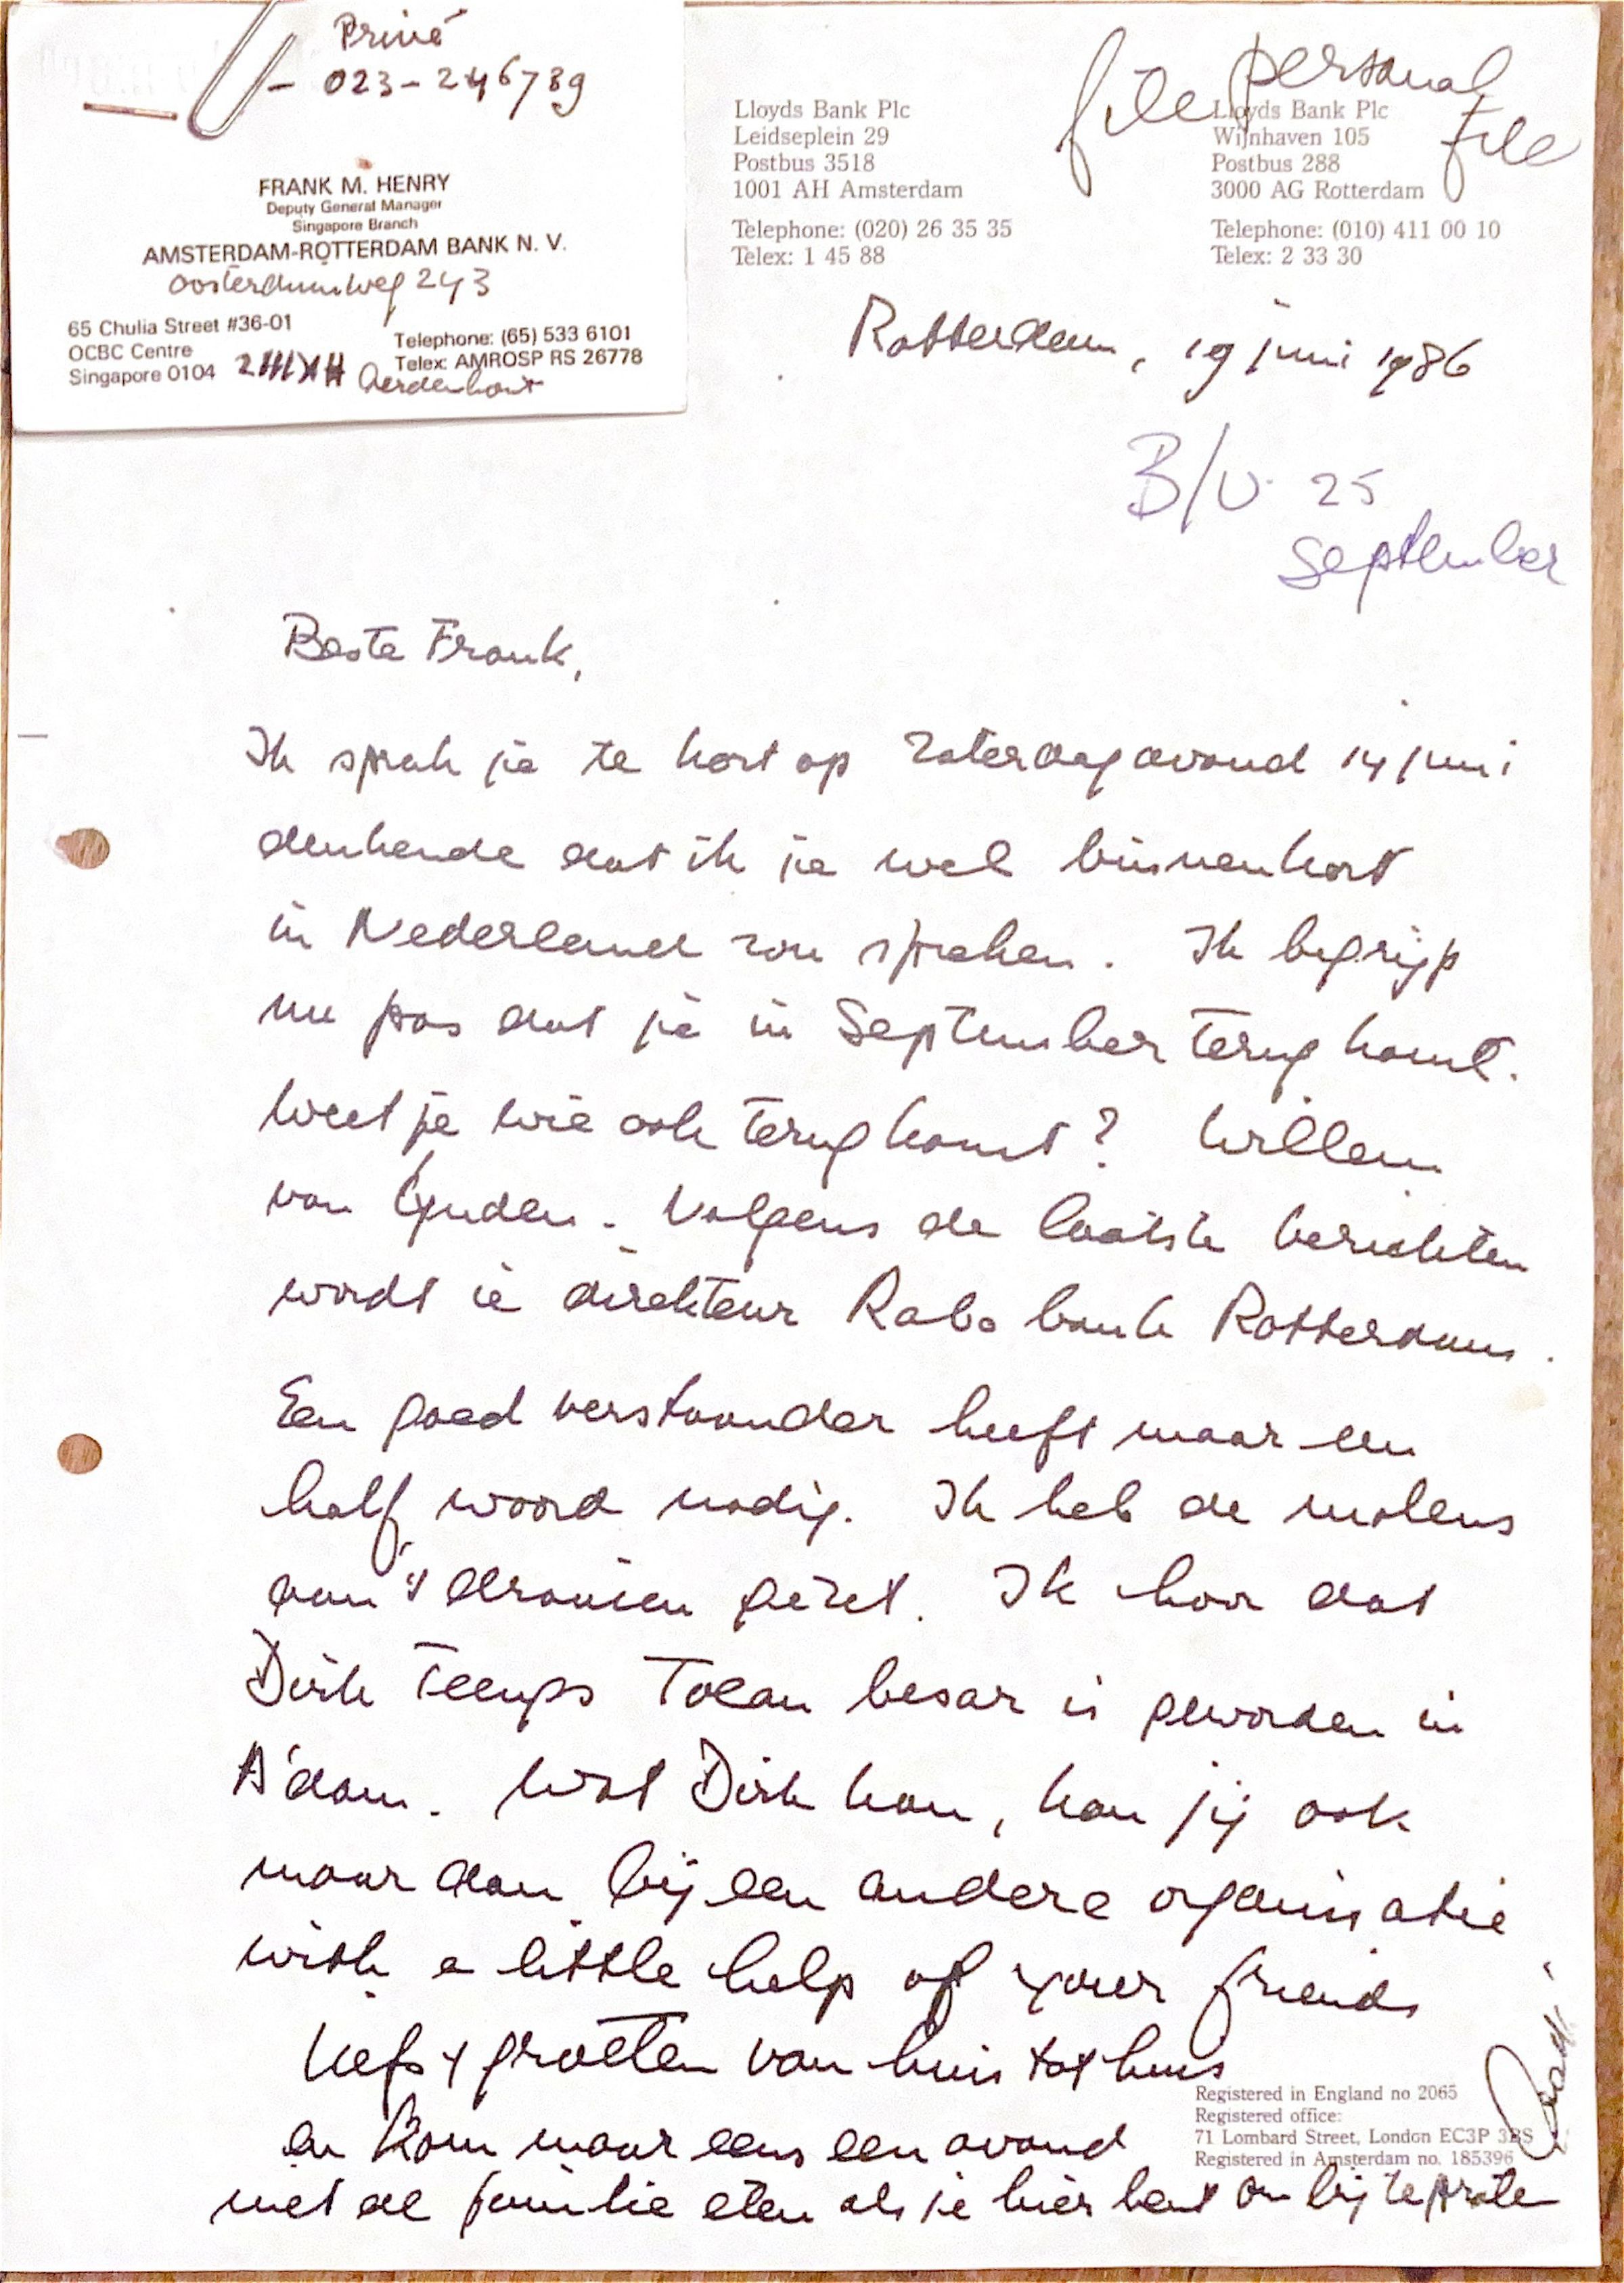 Privé
- 023-246789
FRANK M. HENRY
Deputy General Manager
Singapore Branch
AMSTERDAM-ROTTERDAM BANK N. V.
Oosterduinweg 243
65 Chulia Street #36-01
OCBC Centre
Singapore 0104
Telephone: (65) 533 6101
Telex: AMROSP RS 26778
Aerdenhout
file personal
file
Lloyds Bank Plc
Leidseplein 29
Postbus 3518
1001 AH Amsterdam
Telephone: (020) 26 35 35
Telex: 1 45 88
Lloyds Bank Plc
Wijnhaven 105
Postbus 288
3000 AG Rotterdam
Telephone: (010) 411 00 10
Telex: 2 33 30
Rotterdam, 19 juni 1986
B/U 25
September
Beste Frank,
Ik sprak je te kort op zaterdagavond 14 juni
denkende dat ik je wel binnenkort
in Nederland zou spreken. Ik begrijp
nu pas dat je in September terug komt.
Weet je wie ook terug komt? Willem
van Eynden. Volgens de laatste berichten
wordt ie direkteur Rabo bank Rotterdam.
Een goed verstaander heeft maar een
half woord nodig. Ik heb de molens
aan 't draaien gezet. Ik hoor dat
Dirk Toean besar is geworden in
A'dam. Wat Dirk kan, kan jij ook
maar dan bij een andere organisatie
with a little help of your friends
Liefs + groeten van huis tot huis
en kom maar eens een avond
met de familie eten als je hier bent om bij te praten
Registered in England no 2065
Registered office:
71 Lombard Street, London EC3P 3BS
Registered in Amsterdam no. 185396